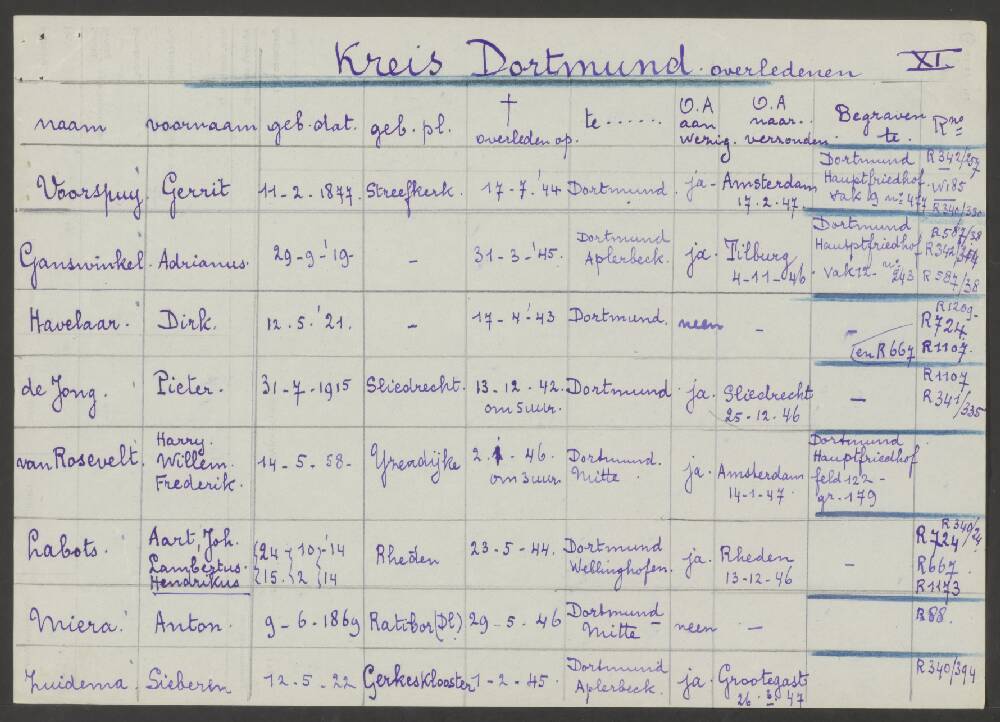 Kreis Dortmund. overledenen XI.
naam voornaam geb. dat. geb. pl. † overleden op. te ...... O.A aan wezig. O.A naar. verzonden. Begraven te. R no
Voorspuy. Gerrit 11-2-1877. Streefkerk. 17-7-'44 Dortmund. ja- Amsterdam 17.2.47 Dortmund Hauptfriedhof vak 19 no 477 R342/257 W185 R340/330
Ganswinkel. Adrianus. 29-9-'19- - 31-3-'45. Dortmund Aplerbeck. ja. Tilburg 4-11-46 Dortmund Hauptfriedhof vak 12- no 243 R587/38
Havelaar. Dirk. 12.5.'21. - 17-4-'43 Dortmund. neen - - en R667 R1209- R724. R1107.
de Jong. Pieter. 31-7-1915 Sliedrecht. 13-12-42. om 5 uur. Dortmund ja. Sliedrecht 25-12-46 - R1107 R341/335
van Rosevelt. Harry. Willem. Frederik. 14-5-58- 46. om 3 uur. Dortmund. Mitte ja. Amsterdam 14-1-47. Dortmund Hauptfriedhof feld 122- gr. 179
Labots. Aart Joh. Lambertus. Hendrikus (24-10-'14 (15. 2 14 Rheden 23-5-44. Dortmund Wellinghofen. ja. Rheden 13-12-46 - R340/24 R724 R667. R1173
Miera. Anton. 9-6-1869 Ratibor (Dl) 29-5-46 Dortmund Mitte neen - R88.
Zuidema. Sieberen 12.5-22 Gerkesklooster 1-2-45. Dortmund Aplerbeck. ja. Grootegast 47 R340/394